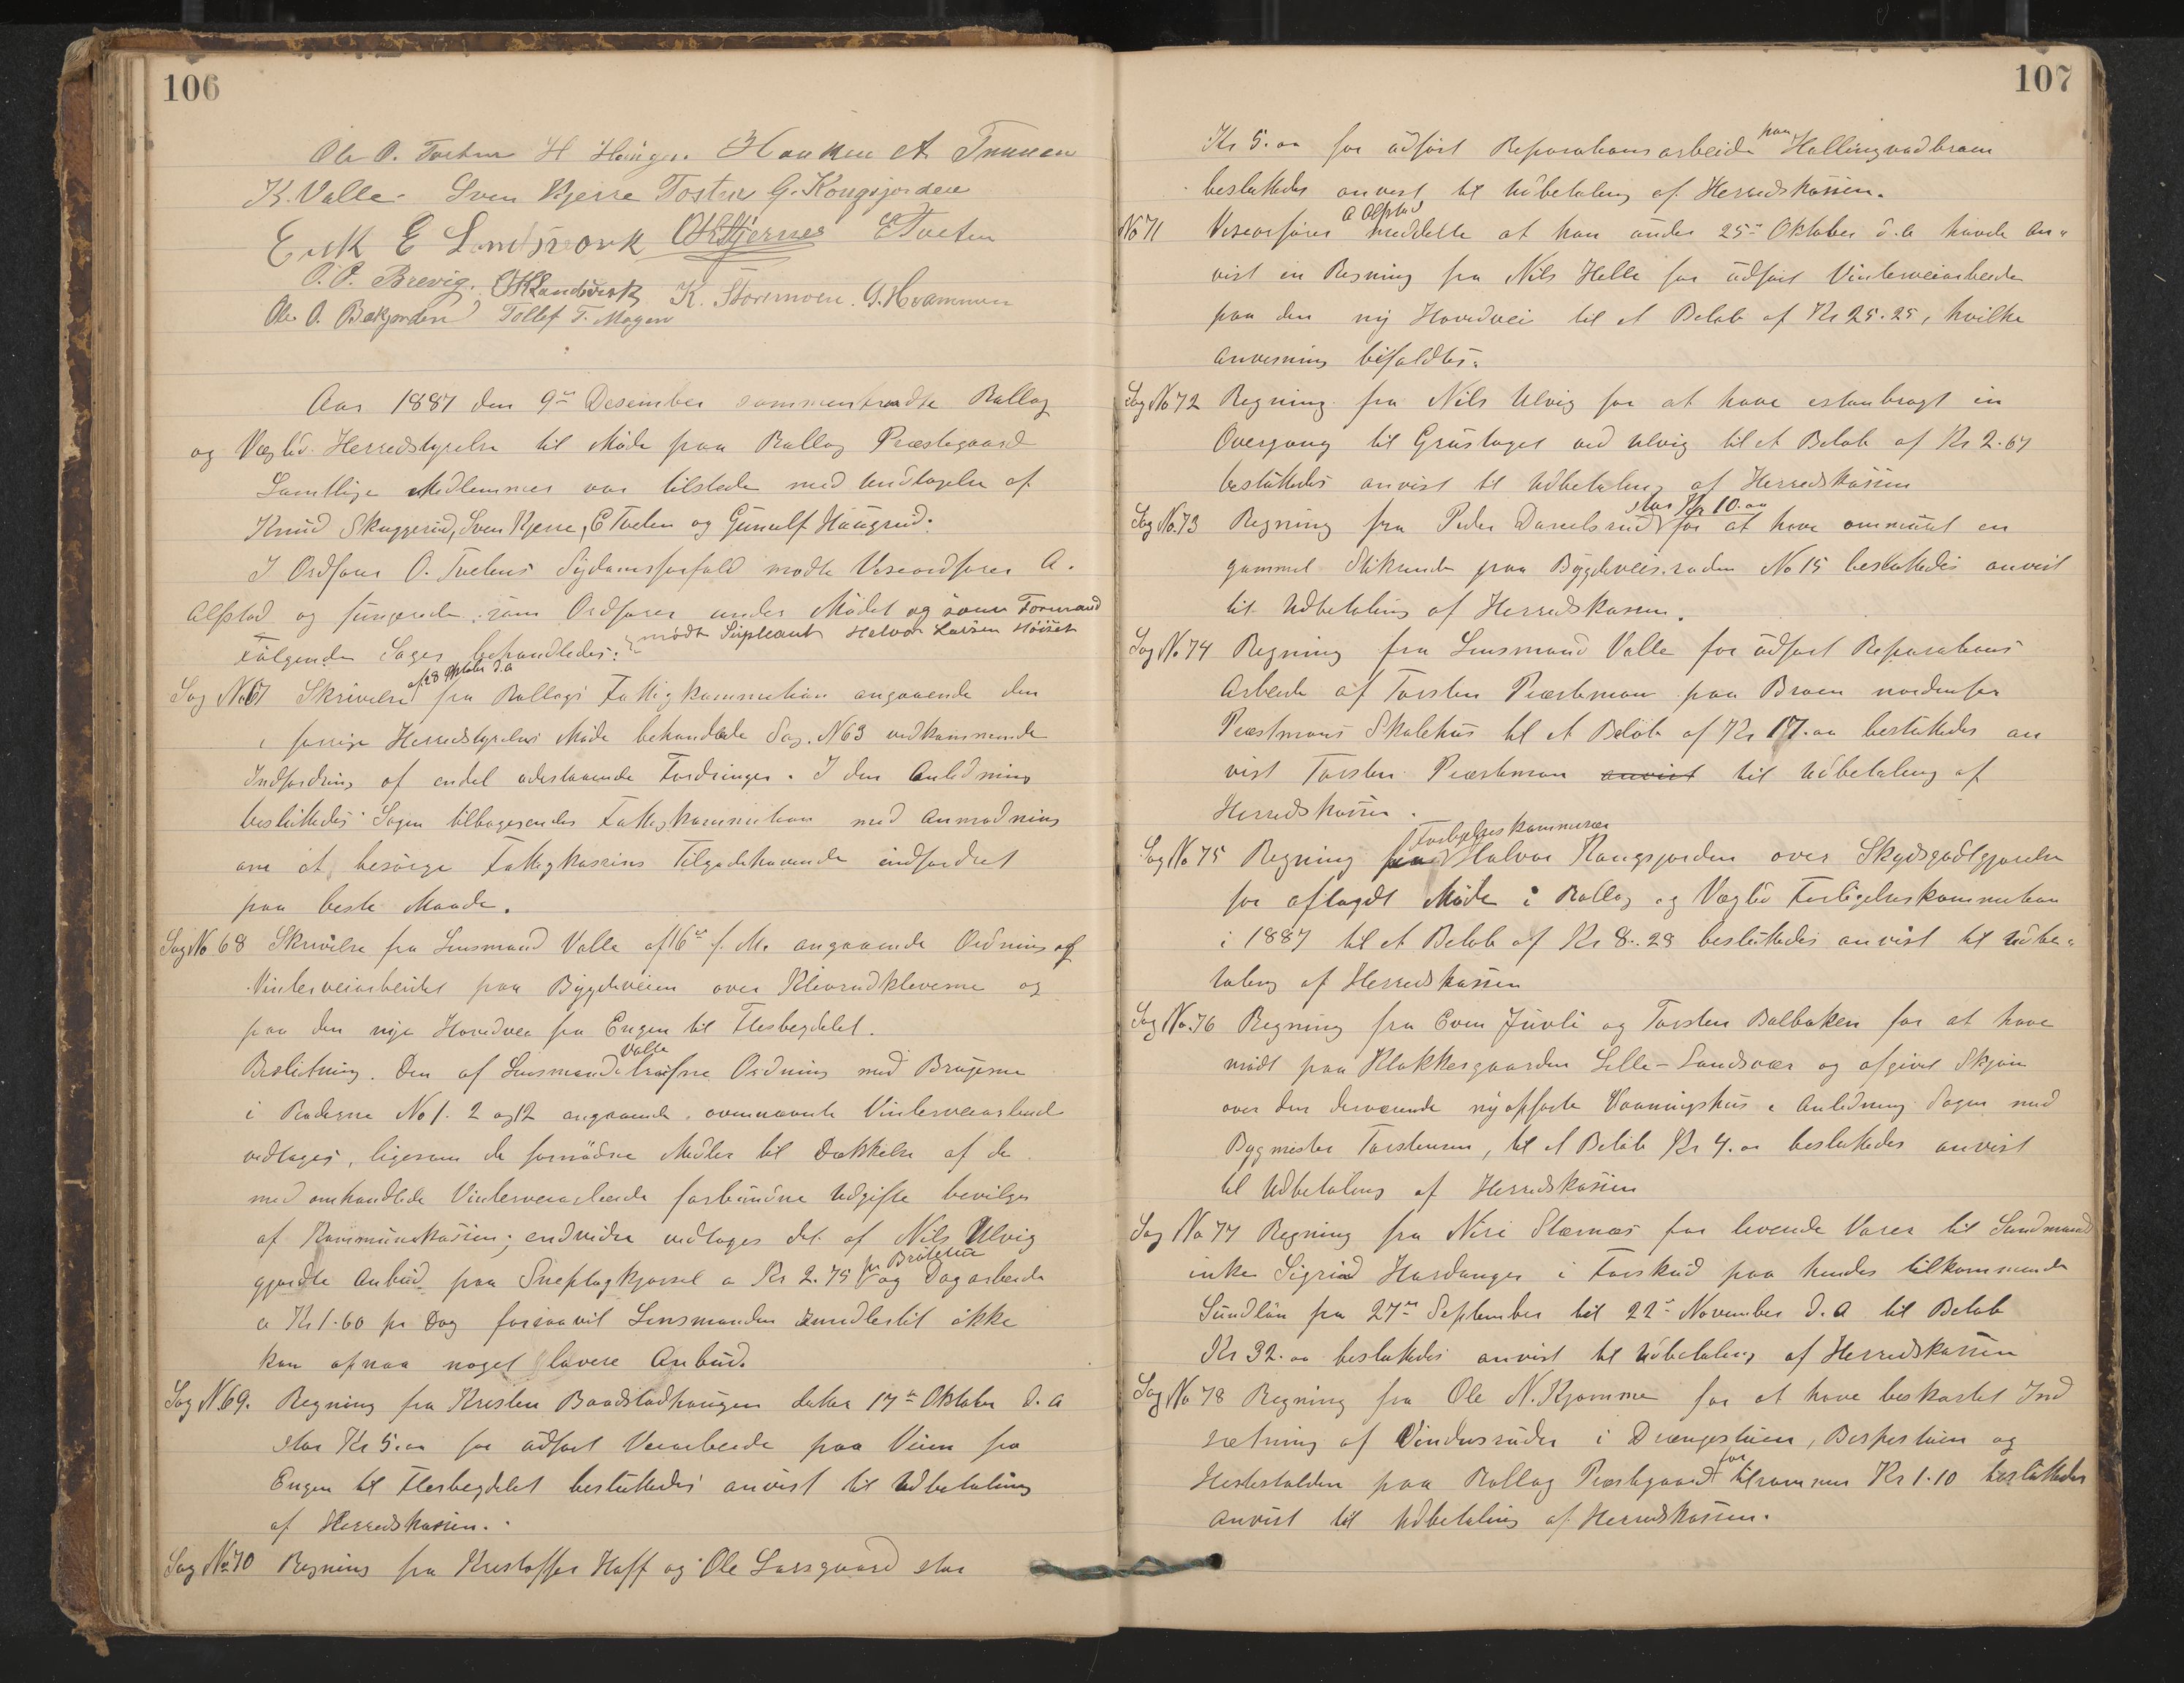 106
Ole O. Tveten H Haugen. Haaken A Traaen
K. Valle. Sven Bjerre Tosten G. Kongsjorden
Erik E Landsverk Stjernes E Tveten
O. P. Brevig. Landsverk K. Stormoen. G. Hvammen
Ole O. Bekjorden Tollef T. Mogen
Aar 1887 den 9de Desember sammentraadte Rollag
og Væglid Herredstyrelse til Møde paa Rollag Præstegaard
Samtlige Medlemmer var tilstede med Undtagelse af
Knud Skuggerud, Sven Bjerre, E Tveten og Gunulf Haugrud.
I Ordfører O. Tvetens Sygdomsforfald mødte Viseordfører A.
Alfstad og fungerede som Ordfører under Mødet og som Formand
mødte Supleant Halvor Larsen Høiset
Følgende Sager behandledes:
af 28 Oktober d. a
Sag No 67 Skrivelse fra Rollags Fattigkommission angaaende den
i forrige Herredstyrelses Møde behandlede Sag. N 63 vedkommende
Indfordring af endel udestaaende Fordringer. I den Anledning
besluttedes Sagen tilbagesendes Fattigkommission med Anmodning
om at besørge Fattigkassens Tilgodehavende indfordret
paa beste Maade.
Sag No 68 Skrivelse fra Lensmand Valle af 16de f. M. angaaende Ordning af
Vinterveiarbeidet paa Bygdeveien over Klevrudkleverne og
paa den nye Hovedvei fra Engen til Flesbergdelet.
Valle
Beslutning. Den af Lensmand trufne Ordning med Brugerne
i Roderne No 1. 2 og 12 angaaende ovennævnte Vinterveiarbeide
vedtages, ligesom de fornødne Midler til Dækkelse af de
med omhandlede Vinterveiarbeide forbundne Udgifte bevilges
af Kommunekassen; endvidre vedtages det af Nils Ulvig
pr Brøitetur
gjordte Anbud paa Sneplogkjørsel a Kr 2.75 og Dagarbeide
a Kr 1.60 pr Dag forsaavit Lensmanden imidlertid ikke
kan opnaa noget lavere Anbud.
Sag N. 69. Regning fra Kristen Baadstadhaugen datter 17de Oktober d. a
stor Kr 5.00 for udført Veiarbeide paa Veien fra
Engen til Flesbergdelet besluttedes anvist til Udbetaling
af Herredskassen.
Sag No 70 Regning fra Kristoffer Hoff og Ole Larsgaard stor
107
paa
Kr 5.00 for udført Reparationsarbeide Hallingvadbroen
besluttedes anvist til Udbetaling af Herredskassen.
A Alfstad
No 71 Viseordfører meddelte at han under 25de Oktober d. a havde an-
vist en Regning fra Nils Helle for udført Vinterveiarbeide
paa den ny Hovedvei til et Beløb af Kr 25.25, hvilke
Anvisning bifaldtes.
Sag No 72 Regning fra Nils Ulvig for at have istanbragt en
Overgang til Grustaget ved Ulvig til et Beløb af Kr 2.67
besluttedes anvist til Udbetaling af Herredskassen
stor Kr 10.00
Sag No. 73 Regning fra Peder Danielsrud for at have ommuret en
gammel Stikrende paa Bygdeveis roden No 15 besluttedes anvist
til Udbetaling af Herredskassen.
Sag No 74 Regning fra Lensmand Valle for udført Reparations
Arbeide af Torsten Præstmoen paa Broen nordenfor
Præstmoens Skolehus til et Beløb af Kr 17.00 besluttedes an
vist Torsten Præstmoen anvist til Udbetaling af
Herredskassen.
Forligelseskommissær
Sag No 75 Regning fra Halvor Kongsjorden over Skydsgodtgjørelse
for aflagdt Møde i Rollag og Væglid Forligelseskommission
i 1887 til et Beløb af Kr 8.28 besluttedes anvist til Udbe-
taling af Herredskassen
Sag No. 76 Regning fra Even Juvli og Torsten Balbaken for at have
mødt paa Klokkergaarden Lille-Landsvær og afgivet Skjøn
over den derværende nyopførte Vaaningshus i Anledning Sagen med
Bygmester Torstensen, til et Beløb Kr 4.00 besluttedes anvist
til Udbetaling af Herredskassen
Sag No 77 Regning fra Niri Stærnæs for levende Varer til Sundmand
enke Sigrid Hardanger i Forskud paa hendes tilkommende
Sundløn fra 27de September til 22de November d. a til Beløb
Kr 32.00 besluttedes anvist til Udbetaling af Herredskassen
Sag No 78 Regning fra Ole N. Kjomme for at have beskostet Ind
sætning af Vindusruder i Drængestuen, Borgerstuen og
for
Hestestalden paa Rollag Præstegaard tilsammen Kr 1.10 besluttedes
anvist til Udbetaling af Herredskassen.